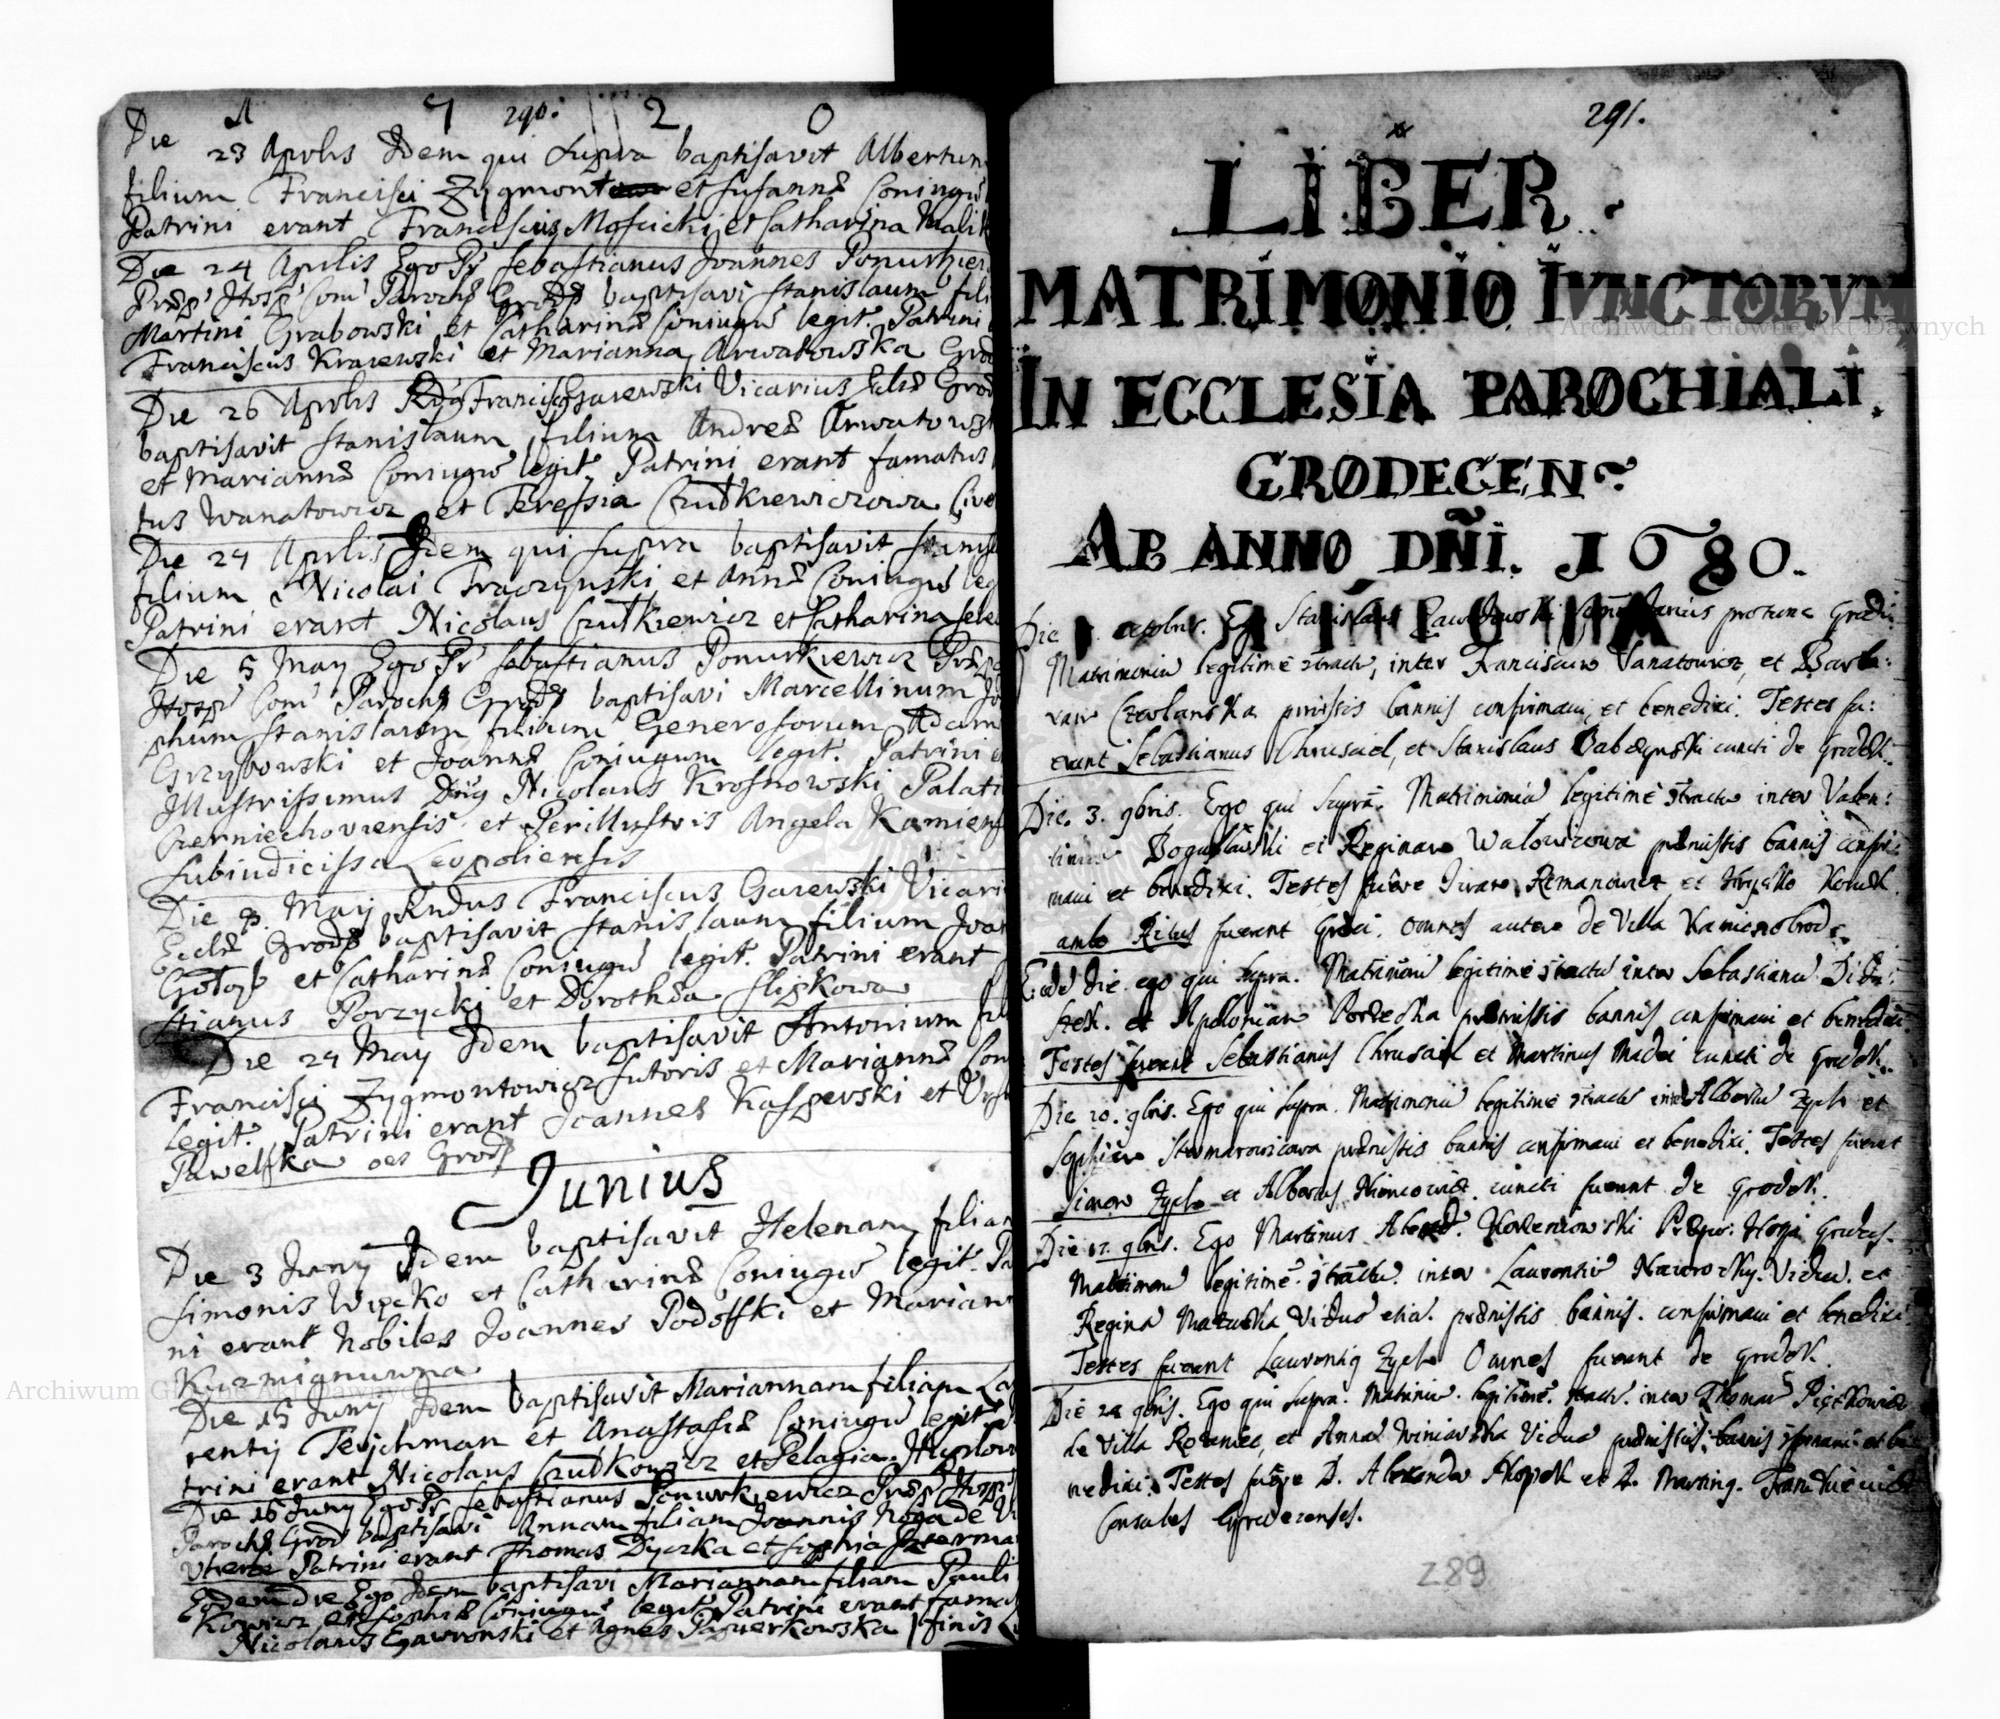 A 7 290. 2 0
Die 23 Aprlis Idem qui supra baptisavit Albertum
filium Francisci Zygmont et Susannæ Coniugū
Patrini erant Franciscus Moscicki et Catharina Malik
Die 24 Aprilis Ego Pr Sebastianus Joannes Ponurkie
Præp Hosp Com Paroch Grod baptisavi Stanislaum fili
Martini Grabowski et Catharinæ Coniugū legit. Patrini
Franciscus Kraiewski et Marianna Arwatowska Grod
Die 26 Aprlis Rdus Francisc Garewski Vicarius Eccl Grod
baptisavit Stanislaum filium Andreæ Arwatowsk
et Mariannæ Coniugū legit. Patrini erant famatus
tus Iwanatowicz et Teressia Czutkiewiczowa Cive
Die 24 Aprlis Idem qui supra baptisavit Stanis
filium Nicolai Traczynski et Annæ Coniugū leg
Patrini erant Nicolaus Czutkiewicz et Catharina
Die 5 May Ego Pr Sebastianus Ponurkiewicz Præp
Hosp Com Paroch Grod baptisavi Marcellinum Jo
phum Stanislaum filium Generosorum Adam
Grzybowski et Joannæ Coniugum legit. Patrini e
Illustrissimus Dn9 Nicolaus Krosnowski Palati
Czerniechoviensis et Perillustris Angela Kamiens
Subiudicissa Leopoliensis
Die 9 May Rndus Franciscus Garewski Vicari
Eccl Grod baptisavit Stanislaum filium Joan
Gołogo et Catharinæ Coniugū legit. Patrini erant
stianus Porzycki et Dorothea Sliskowa
Die 24 May Idem baptisavit Antonium fil
Francisci Zygmontowicz Sutoris et Mariannæ Con
legit. Patrini erant Joannes Kasperski et Urs
Pawelska oes Grod
Junius
Die 3 Juny Idem baptisavit Helenam filiam
Simonis Więcko et Catharinæ Coniugū legit. Pa
ni erant Nobiles Joannes Podosski et Mariann
Kuzmianuwna
Die 15 Juny Idem baptisavit Mariannam filiam La
rentij Tejchman et Anastasiæ Coniugū legit
trini erant Nicolaus Czudkowicz et Pelagia
Die 16 Juny Ego Pr Sebastianus Ponurkiewicz Præp Hosp
Paroch Grod baptisavi Annam filiam Joannis Noga de V
Patrini erant Thomas Dyczka et Sophia
Eodem die Ego Idem baptisavi Mariannam filiam Pauli
kowicz et Sophiæ Coniugū legit Patrini erant fama
Nicolaus Gawronski et Agnes Paszerkowska finis
291.
LIBER
MATRIMONIO IVNCTORVM
IN ECCLESIA PAROCHIALI.
GRODECEN
AB ANNO DÑI. 1680.
Die octobris. Ego Stanislaus Commendarius pro tunc Grode
Matrimoniū legitime ctractū, inter Franciscum Vanatowicz, et Barba:
ram Czwolanska præmissis bannis confirmavi, et benedixi. Testes fu:
erunt Sebastianus Chrusciel, et Stanislaus Babczynski cuncti de Grodek.
Die. 3. 9bris. Ego qui supra. Matrimoniū legitime ctractū inter Valen:
tinum Boguslawski et Reginam Watowicowa præmissis bannis confir:
mavi et benedixi. Testes fuere Iwan Romanowicz et Hryczko Kowal.
ambo Ritus fuerunt Græci. omnes autem de Villa Kamienobrod.
Eodē die ego qui supra. Matrimoniū legitime ctractū inter Sebastianū
stek. et Apoloniam præmissis bannis confirmavi et benedixi
Testes fuerunt Sebastianus Chrusciel et Martinus Madei cuncti de Grodek.
Die 10. 9bris. Ego qui supra. Matrimoniū legitime ctractū inter Albertū Zych et
Sophiam præmissis bannis confirmavi et benedixi. Testes fuerunt
Simon Zych et Albertus Niemcowicz cuncti fuerunt de Grodek.
Die 17. 9bris. Ego Martinus Korzeniowski Præpos: Hosp: Grodec.
Matrimoniū legitime ctractū. inter Laurentiū Viduū. et
Regina Mazurka Viduā etiā. præmissis bannis. confirmavi et benedixi.
Testes fuerunt Laurenti9 Zych Omnes fuerunt de Grodek.
Die 24 9bris. Ego qui supra. Matrimoniū. legitime. ctractū. inter Thomam Piętkowicz
de Villa et Annam Winiarska Vidua præmissis bannis cfirmavi et be
nedixi. Testes fuere D. Alexander Skopek et D. Martin9.
Consules Grodecenses.
289
Archiwum Główne Akt Dawnych
Archiwum Główne Akt Dawnych